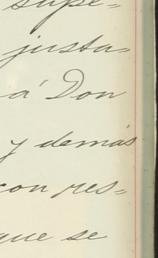 supe=
justa=
á Don
y demás
con res=
que se